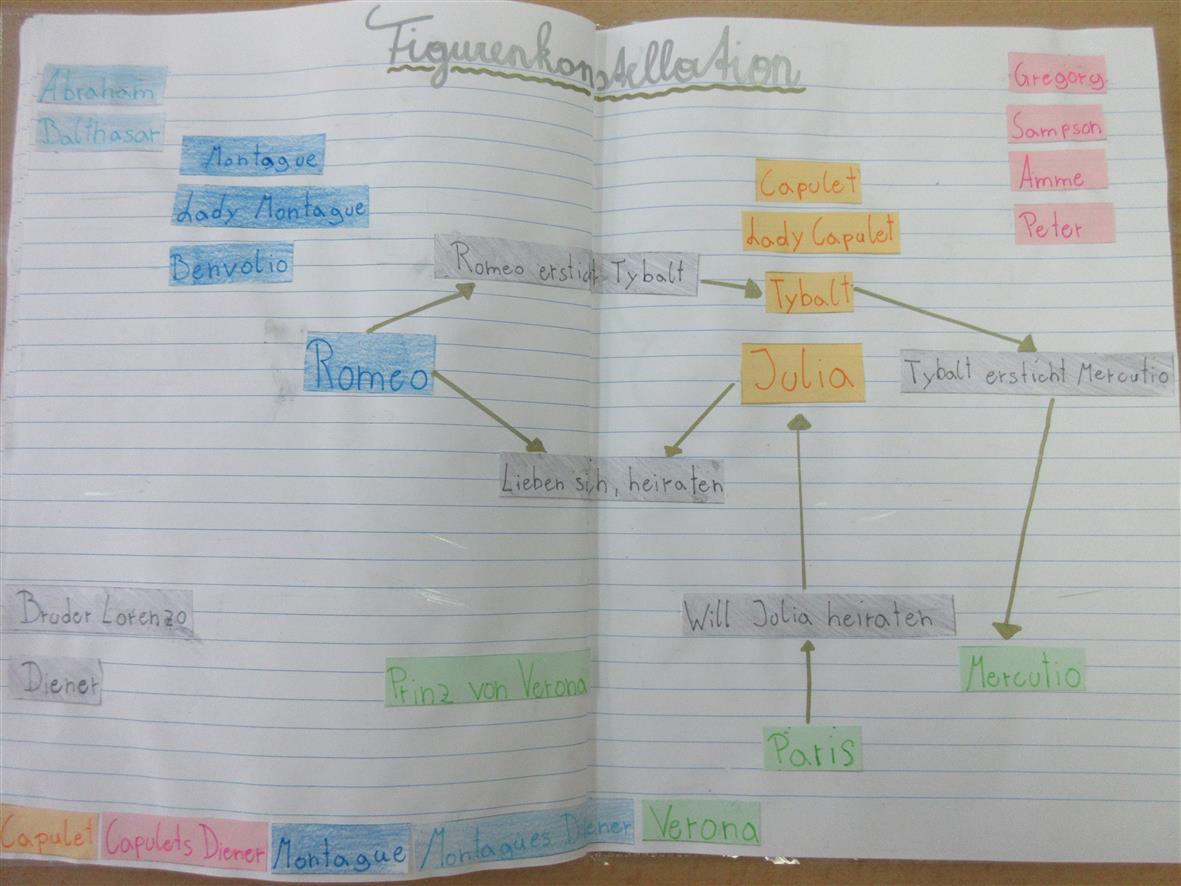 Figurenkonstellation
Abraham
Balthasar
Montague
Lady Montague
Benvolio
Romeo
Romeo ersticht Tybalt
Lieben sich, heiraten
Capulet
Lady Capulet
Tybalt
Julia
Gregory
Sampson
Amme
Peter
Tybalt ersticht Mercutio
Bruder Lorenzo
Diener
Prinz von Verona
Will Julia heiraten
Paris
Mercutio
Capulet
Capulets Diener
Montague
Montagues Diener
Verona